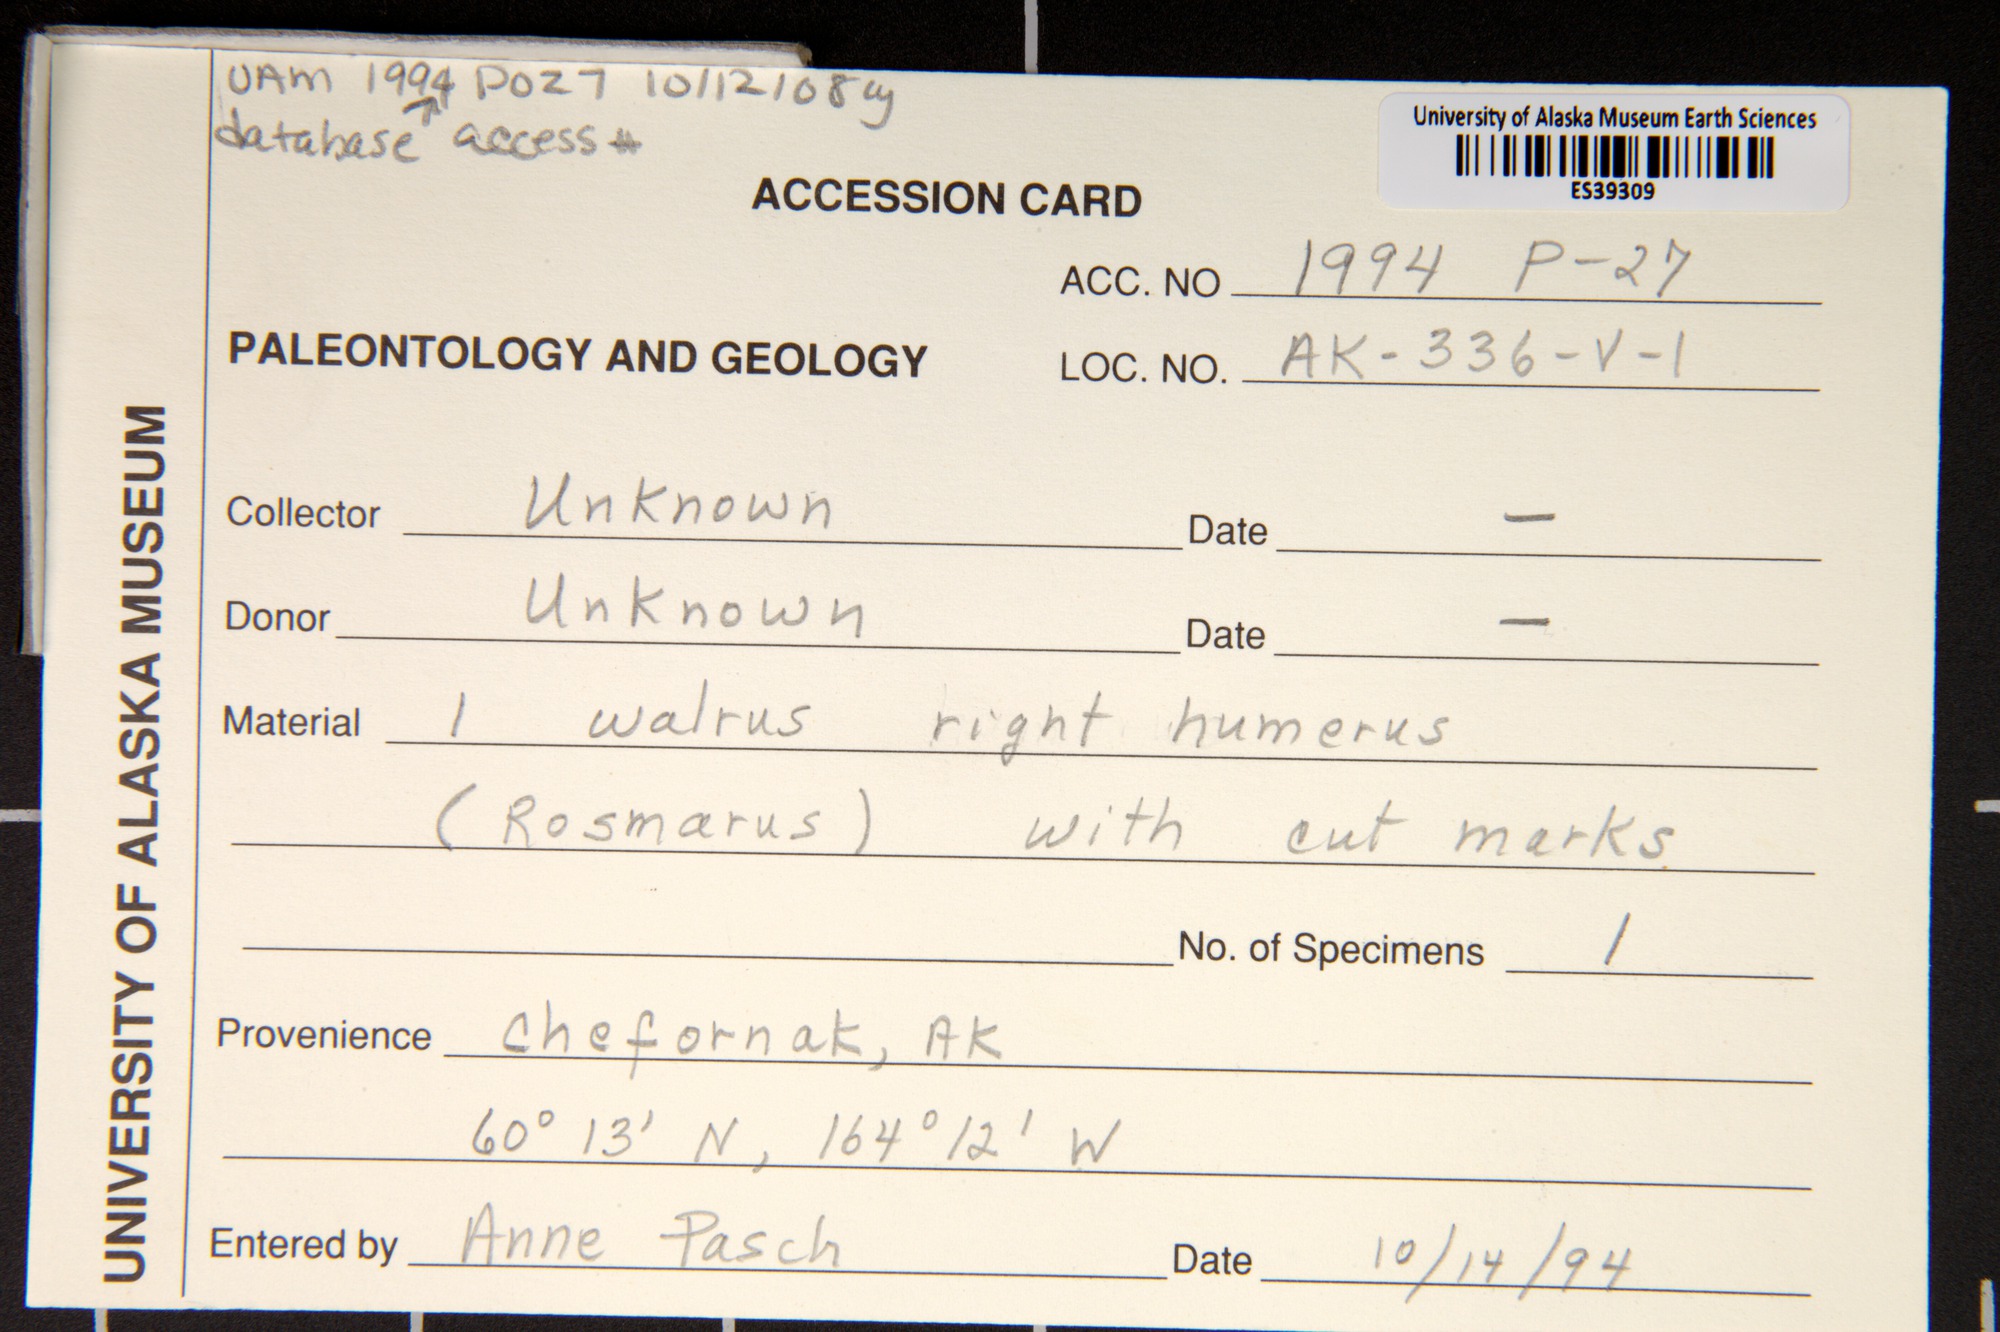 UAM 1994 P027 10/12/08 cy
database access #
University of Alaska Museum Earth Sciences
ES39309
ACCESSION CARD
ACC. NO 1994 P-27
PALEONTOLOGY AND GEOLOGY
LOC. NO. AK-336-V-1
UNIVERSITY OF ALASKA MUSEUM
Collector Unknown Date —
Donor Unknown Date —
Material 1 walrus right humerus
(Rosmarus) with cut marks
No. of Specimens 1
Provenience Chefornak, AK
60° 13' N, 164° 12' W
Entered by Anne Pasch Date 10/14/94